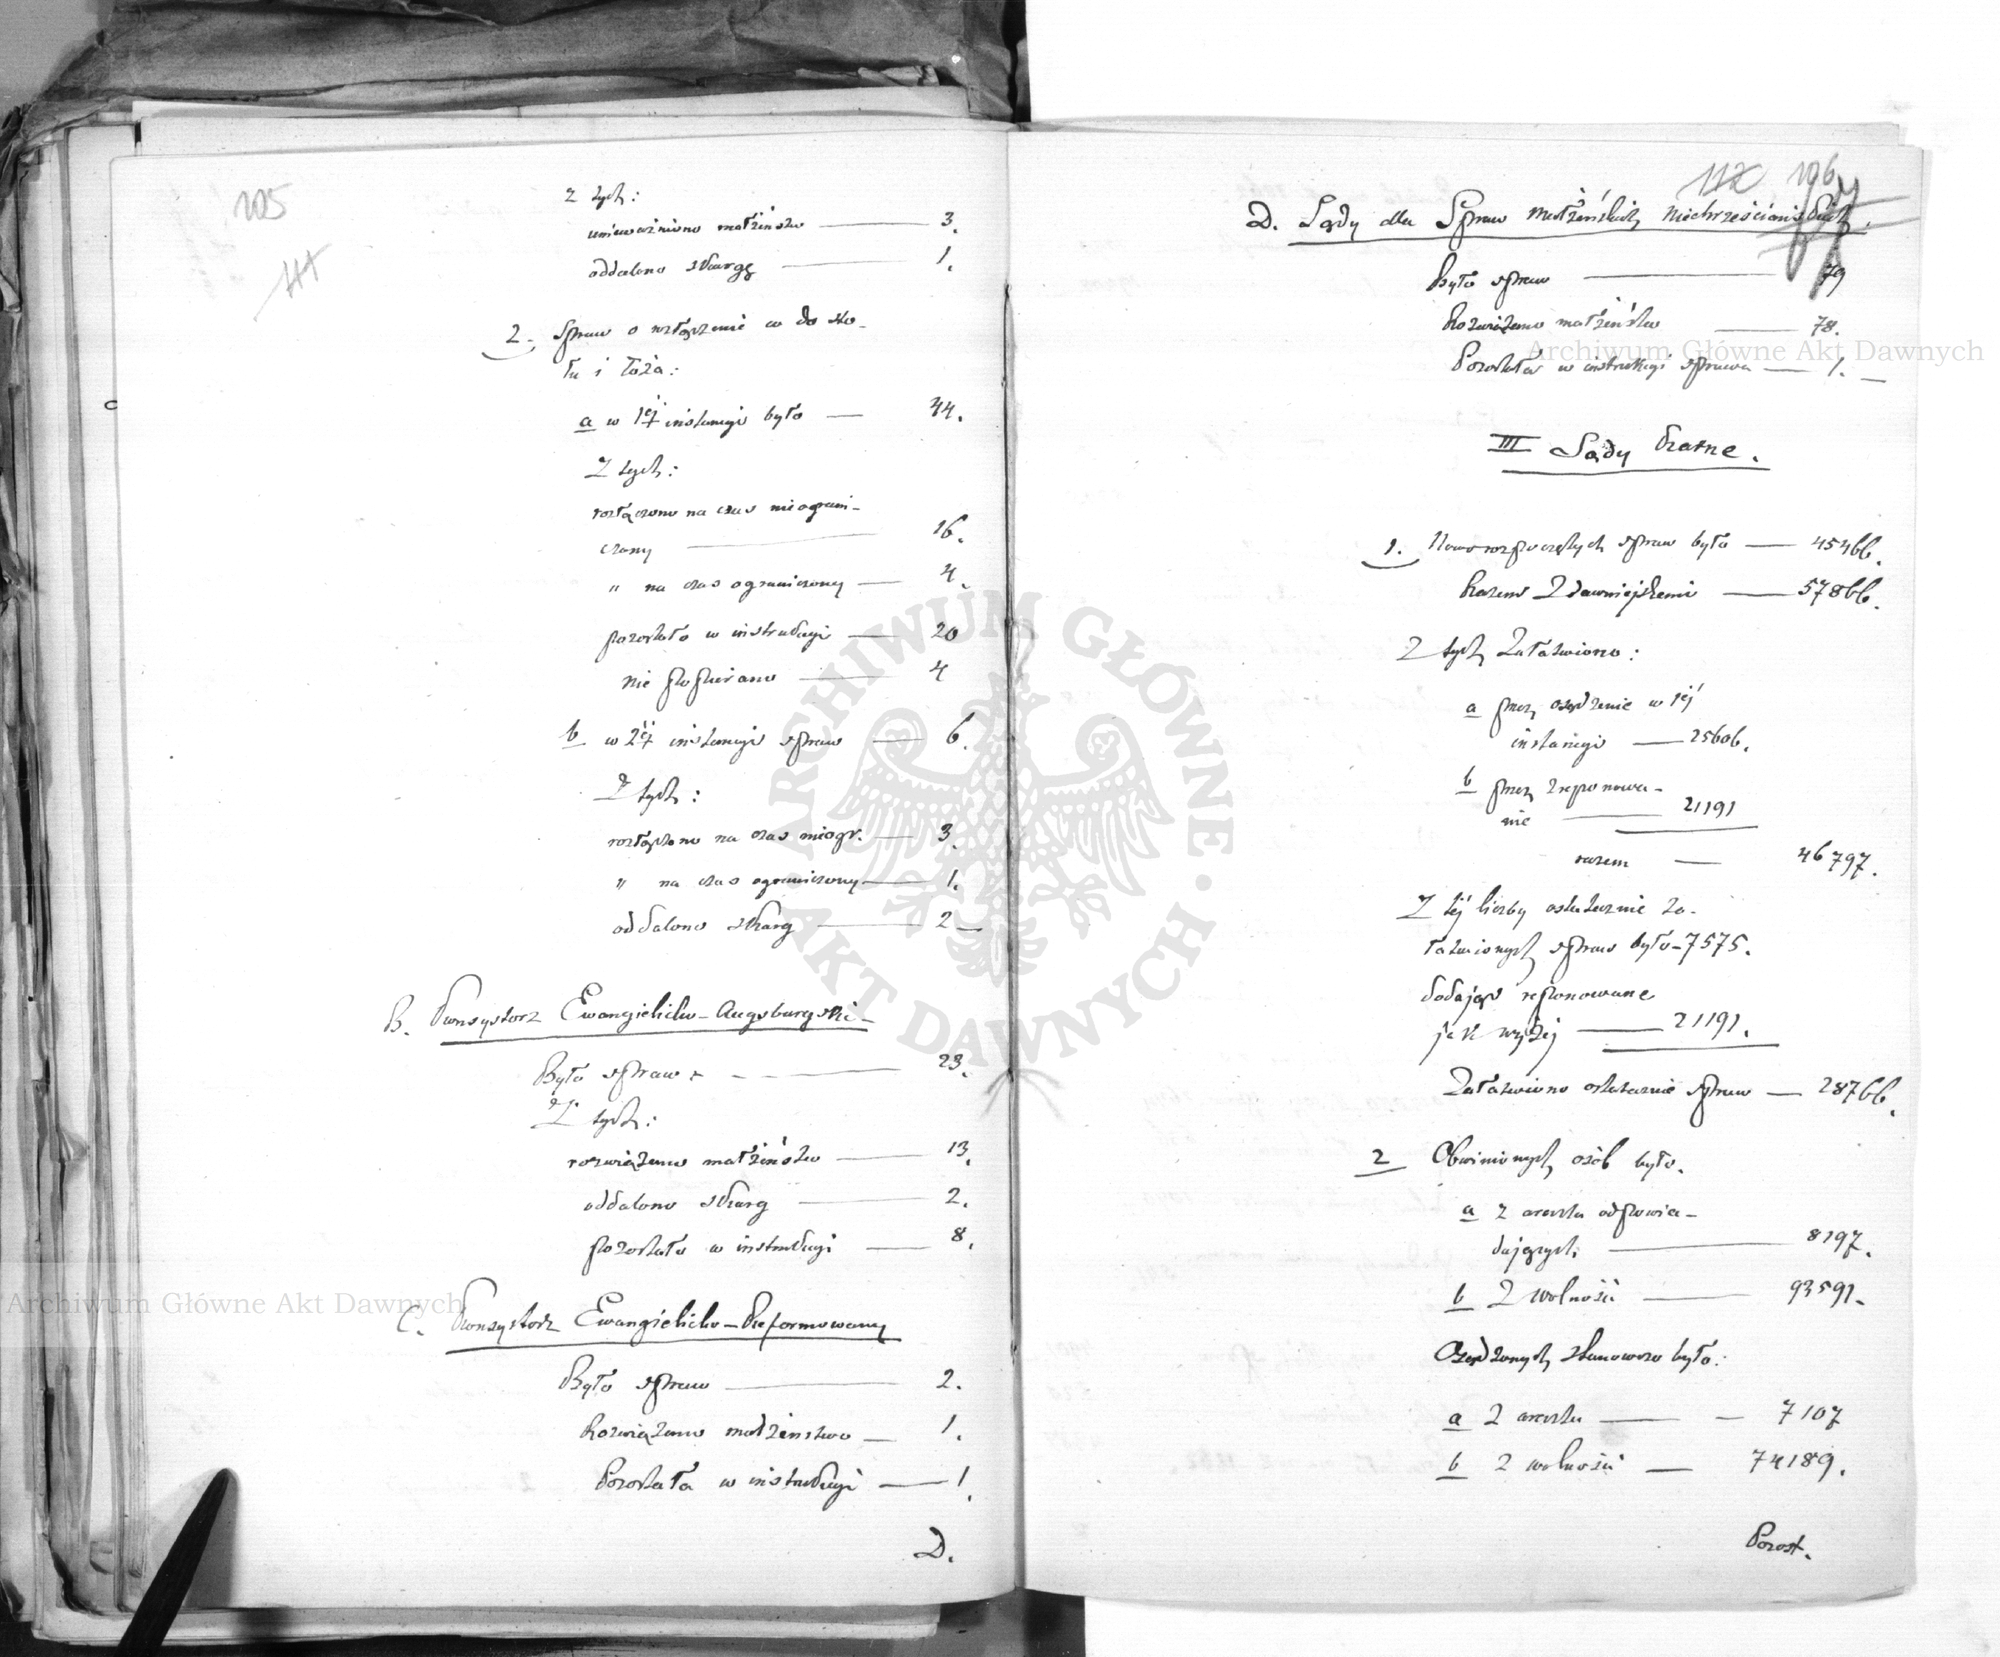 105
111
z tych:
unieważniono małżeństw — 3.
oddalono skargę — 1.
2. Spraw o rozłączenie co do sto-
łu i łoża:
a w 1éj instancyi było — 44.
Z tych:
rozłączono na czas nieograni-
czony — 16.
" na czas ograniczony — 4.
pozostało w instrukcyi — 20
nie popierano — 4
b w 2éj instancyi spraw — 6.
Z tych:
rozłączono na czas nieogr. — 3.
" na czas ograniczony — 1.
oddalono skarg — 2 —
B. Konsystorz Ewangielicko-Augsburgski —
Było spraw — 23.
Z tych:
rozwiązano małżeństw — 13.
oddalono skarg — 2.
pozostało w instrukcyi — 8.
C. Konsystorz Ewangielicko-Reformowany
Było spraw — 2.
Rozwiązano małżenstwo — 1.
Pozostała w instrukcyi — 1.
D.
112 106
D. Sądy dla Spraw Małżeńskich Niechrześciańskich.
Było spraw — 79
Rozwiązano małżeństw — 78.
Pozostała w instrukcyi sprawa — 1. —
III Sądy Karne.
1. Noworozpoczętych spraw było — 45466.
Razem z dawniejszemi — 57866.
Z tych załatwiono:
a przez osądzenie w 1éj
instancyi — 25606.
b przez zreponowa-
nie — 21191
razem — 46797.
Z téj liczby ostatecznie za-
łatwionych spraw było — 7575.
dodając reponowane
jak wyżéj — 21191.
Załatwiono ostatecznie spraw — 28766.
2 Obwinionych osób było.
a z aresztu odpowia-
dających — 8197.
b z wolności — 93591.
Osądzonych stanowczo było:
a z aresztu — 7107
b z wolności — 74189.
Pozost.
Archiwum Główne Akt Dawnych
Archiwum Główne Akt Dawnych
ARCHIWUM GŁÓWNE · AKT DAWNYCH ·